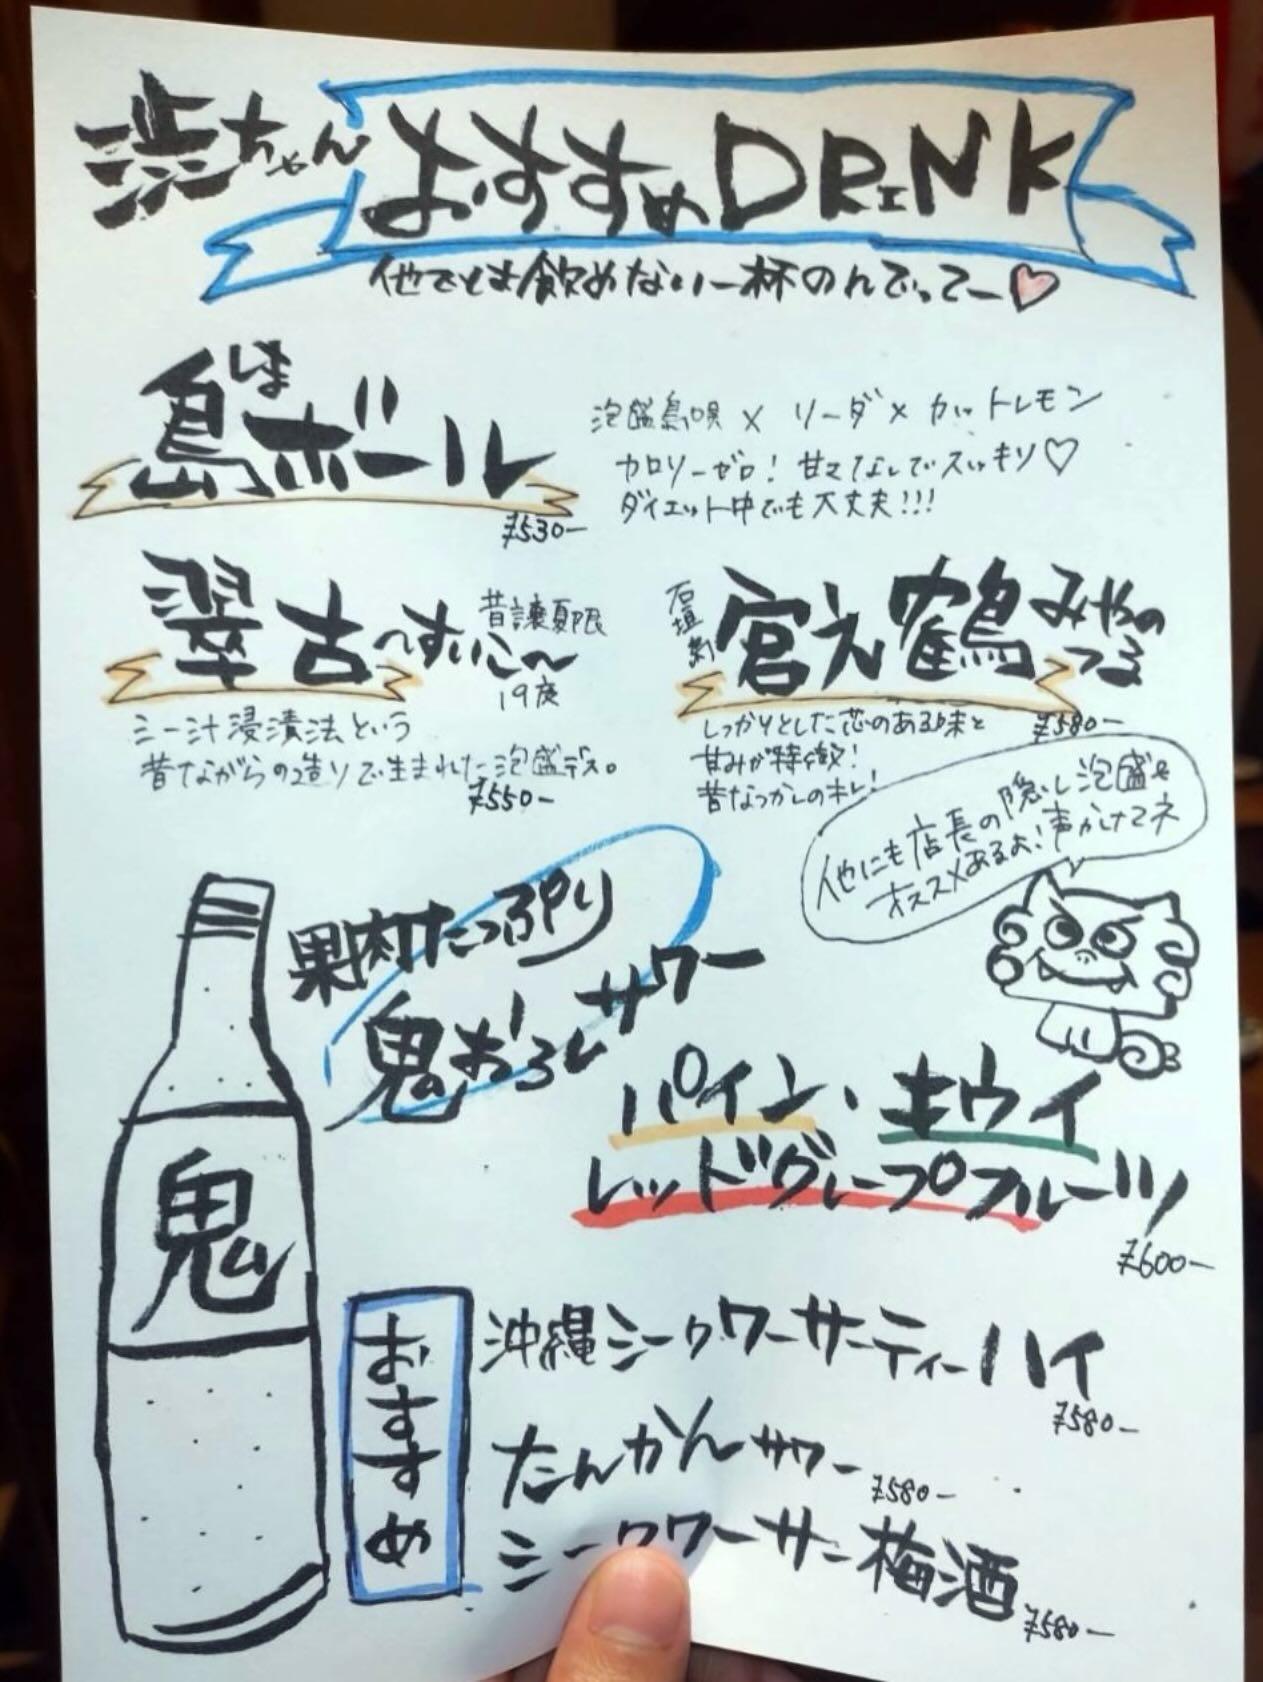 渋ちゃん おすすめDRiNK
他では飲めない一杯のんでってー♡
島ボール しま
¥530-
泡盛島唄 × ソーダ × カットレモン
カロリーゼロ! 甘さなしでスッキリ♡
ダイエット中でも大丈夫!!!
翠古〜すいこ〜
昔譲夏限
19度
シー汁浸漬法という
昔ながらの造りで生まれた泡盛デス。
¥550-
石垣島
宮之鶴 みやのつる
¥580-
しっかりとした芯のある味と
甘みが特徴!
昔なつかしのキレ!
他にも店長の隠し泡盛も
オススメあるよ!声かけてネ
果肉たっぷり
鬼おろしサワー
パイン・キウイ
レッドグレープフルーツ
¥600-
鬼
おすすめ
沖縄シークワーサーティーハイ
¥580-
たんかんサワー ¥580-
シークワーサー梅酒
¥580-